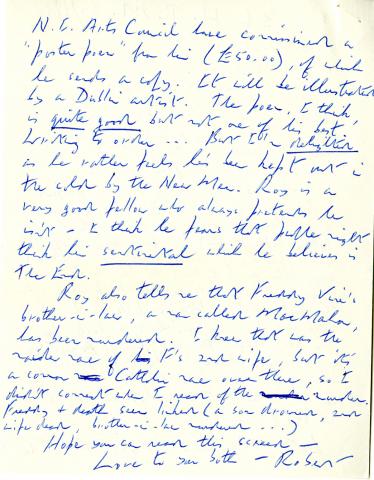 N.I. Arts Council have commissioned a
"poster poem" from him (£50.00), of which
he sends a copy. It will be illustrated
by a Dublin artist. The poem, I think,
is quite good but not one of his best,
writing to order ... But I'm delighted
as he rather feels he's been kept out in
the cold by the New Men. Roy is a
very good fellow who always pretends he
isn't - I think he fears that people might
think him sentimental which he believes is
The End.
Roy also tells me that Freddy Vine's
brother-in-law, a man called MacMahon,
has been murdered. I knew that was the
maiden name of F's 2nd wife, but it's
a common Catholic name over there, so I
didn't connect when I read of the murder.
Freddy & death seem linked (a son drowned, 2nd
wife dead, brother-in-law murdered ...)
Hope you can read this screed -
Love to you both - Robert